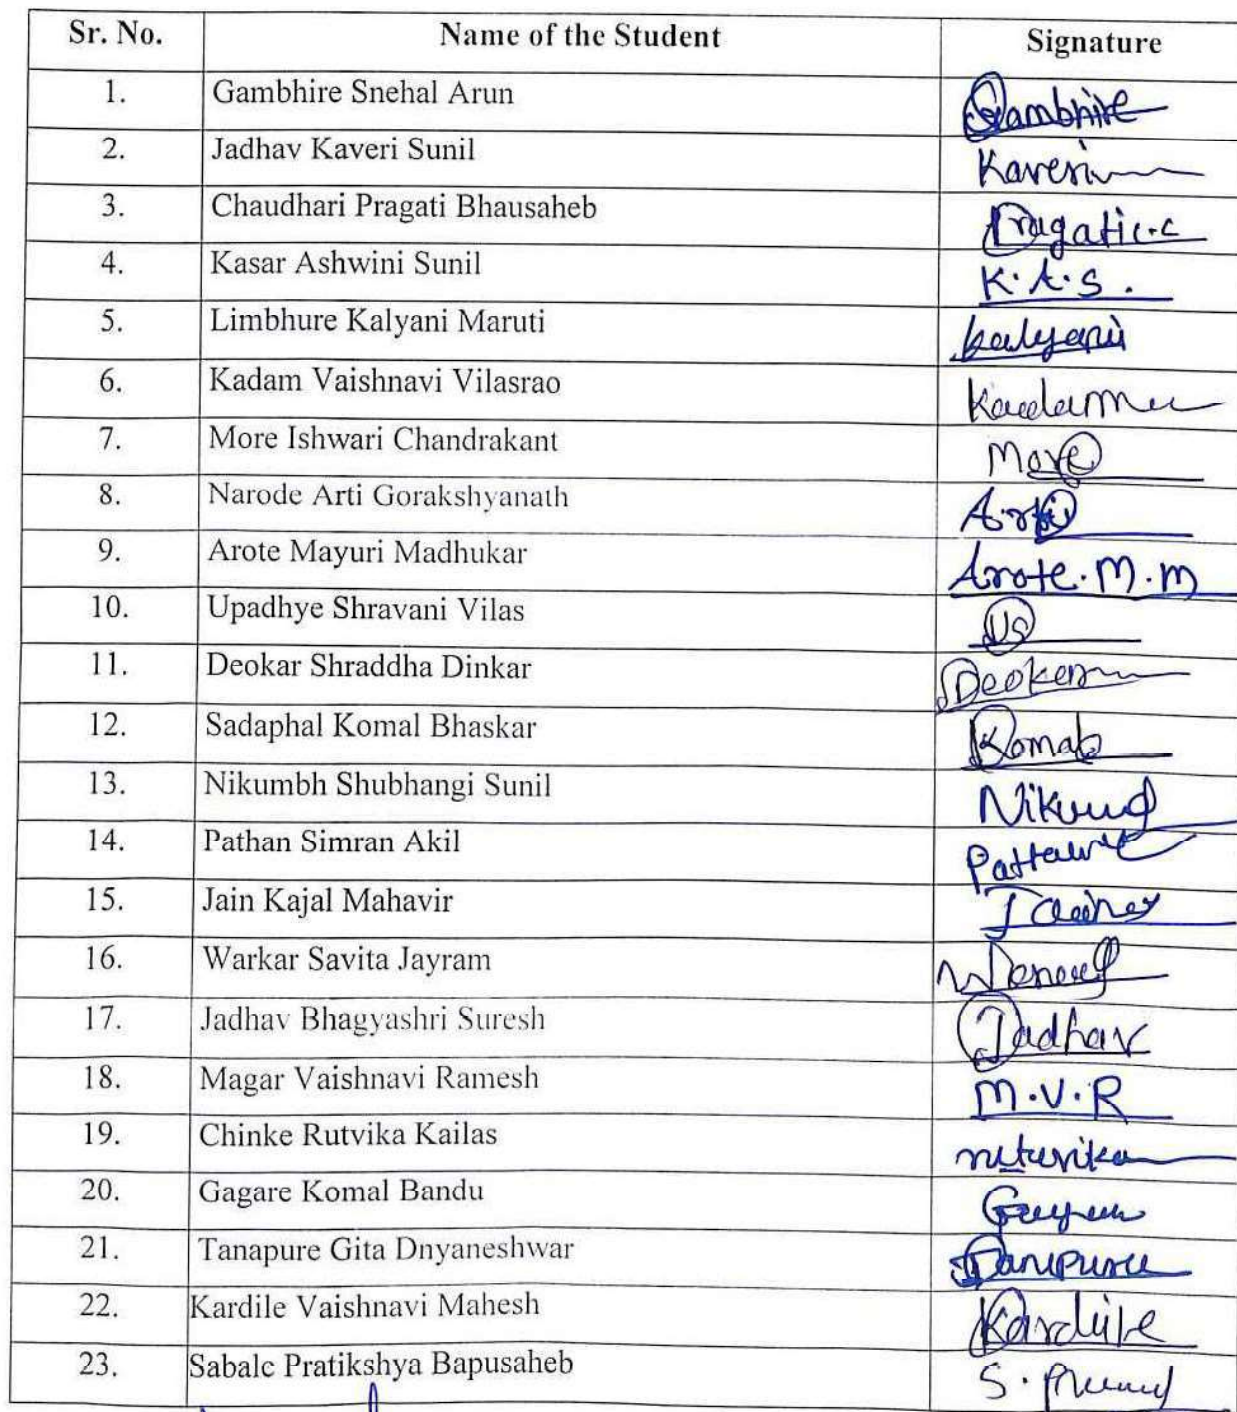 Sr. No. Name of the Student Signature
1. Gambhire Snehal Arun Gambhire
2. Jadhav Kaveri Sunil Kaveri
3. Chaudhari Pragati Bhausaheb Pragati.c
4. Kasar Ashwini Sunil K.A.S.
5. Limbhure Kalyani Maruti kalyani
6. Kadam Vaishnavi Vilasrao
7. More Ishwari Chandrakant More
8. Narode Arti Gorakshyanath Arti
9. Arote Mayuri Madhukar Arote.M.M
10. Upadhye Shravani Vilas US
11. Deokar Shraddha Dinkar Deokar
12. Sadaphal Komal Bhaskar Komal
13. Nikumbh Shubhangi Sunil
14. Pathan Simran Akil
15. Jain Kajal Mahavir
16. Warkar Savita Jayram
17. Jadhav Bhagyashri Suresh Jadhav
18. Magar Vaishnavi Ramesh M.V.R
19. Chinke Rutvika Kailas
20. Gagare Komal Bandu
21. Tanapure Gita Dnyaneshwar
22. Kardile Vaishnavi Mahesh Kardile
23. Sabale Pratikshya Bapusaheb